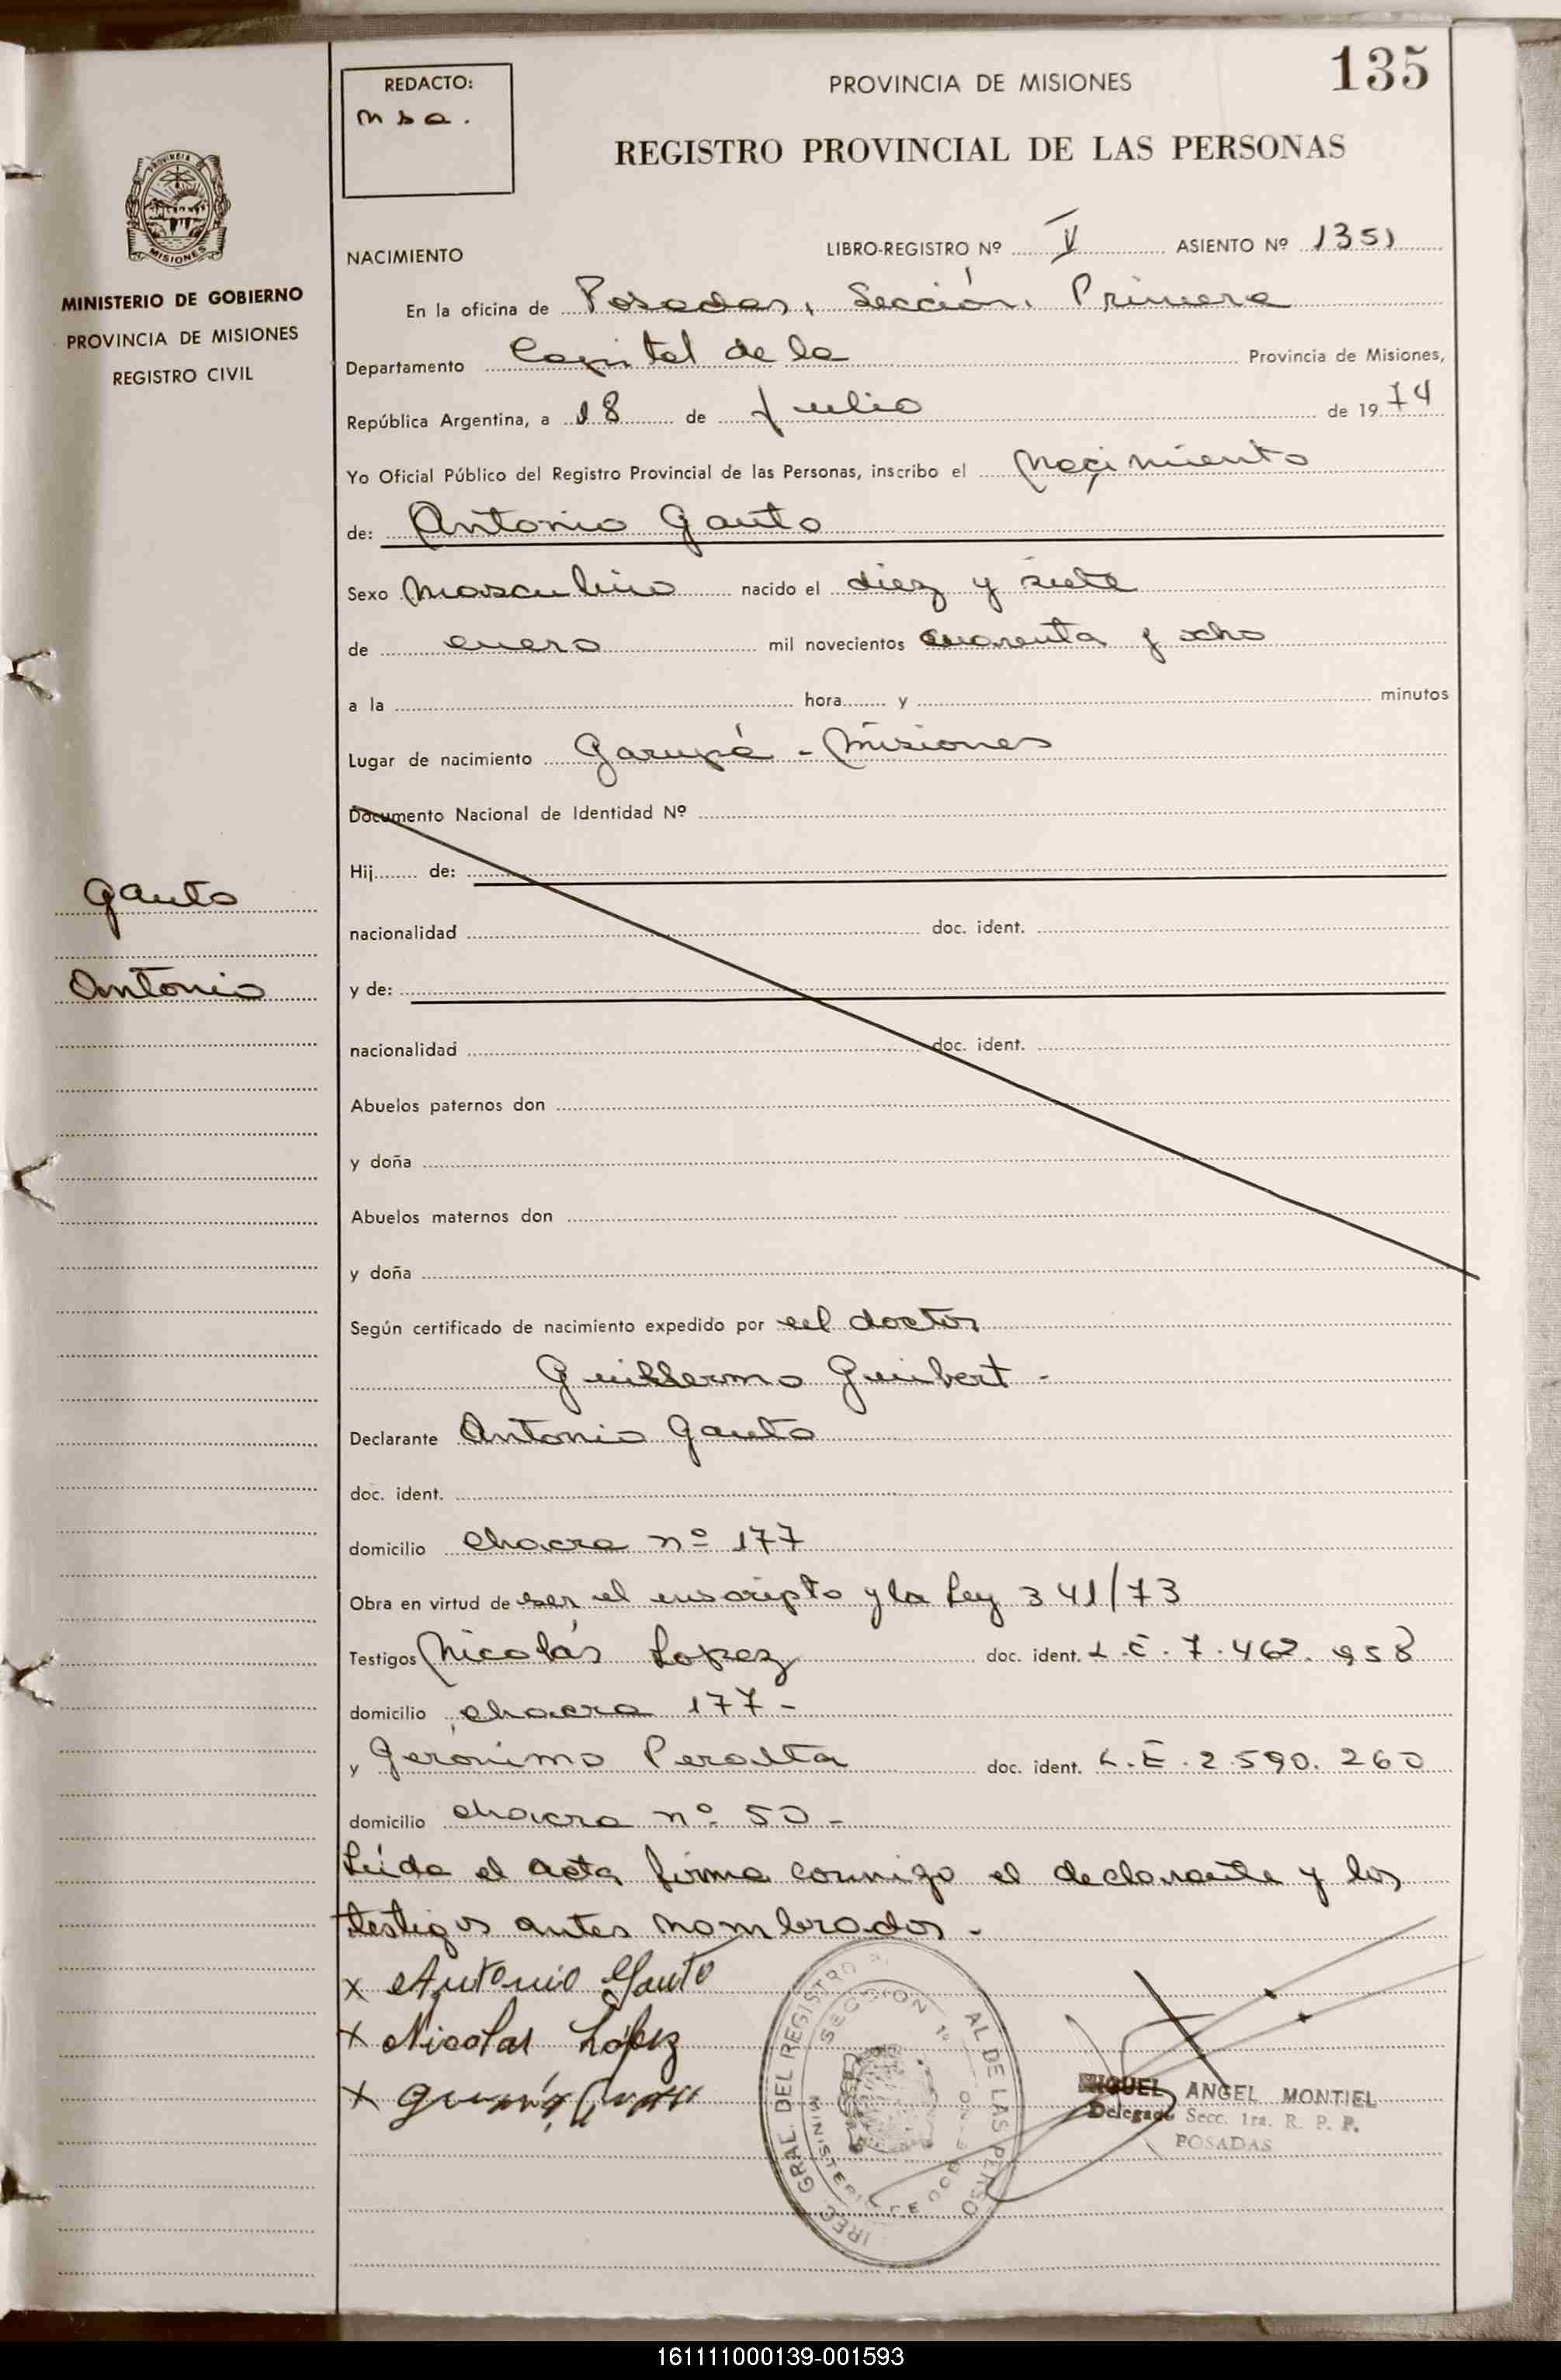 135
REDACTO:
msa.
PROVINCIA DE MISIONES
REGISTRO PROVINCIAL DE LAS PERSONAS
MISIONES
MINISTERIO DE GOBIERNO
PROVINCIA DE MISIONES
REGISTRO CIVIL
Gauto
Antonio
NACIMIENTO LIBRO-REGISTRO Nº V ASIENTO Nº 1351
En la oficina de Posadas, Sección, Primera
Departamento Capital de la Provincia de Misiones,
República Argentina, a 18 de Julio de 1974
Yo Oficial Público del Registro Provincial de las Personas, inscribo el Nacimiento
de: Antonio Gauto
Sexo Masculino nacido el diez y siete
de enero mil novecientos cuarenta y ocho
a la hora y minutos
Lugar de nacimiento Garupá - Misiones
Documento Nacional de Identidad Nº
Hij de:
nacionalidad doc. ident.
y de:
nacionalidad doc. ident.
Abuelos paternos don
y doña
Abuelos maternos don
y doña
Según certificado de nacimiento expedido por el doctor
Guillermo Guibert -
Declarante Antonio Gauto
doc. ident.
domicilio chacra nº 177
Obra en virtud de ser el inscripto y la Ley 341/73
Testigos Nicolás Lopez doc. ident. L.E. 7.462.958
domicilio chacra 177 -
y Gerónimo Peralta doc. ident. L.E. 2.590.260
domicilio chacra nº 50 -
Leída el acta, firma conmigo el declarante y los
testigos antes nombrados -
x Antonio Gauto
x Nicolas López
x
SECCION 1ª
MIGUEL ANGEL MONTIEL
Delegado Secc. 1ra. R. P. P.
POSADAS
161111000139-001593